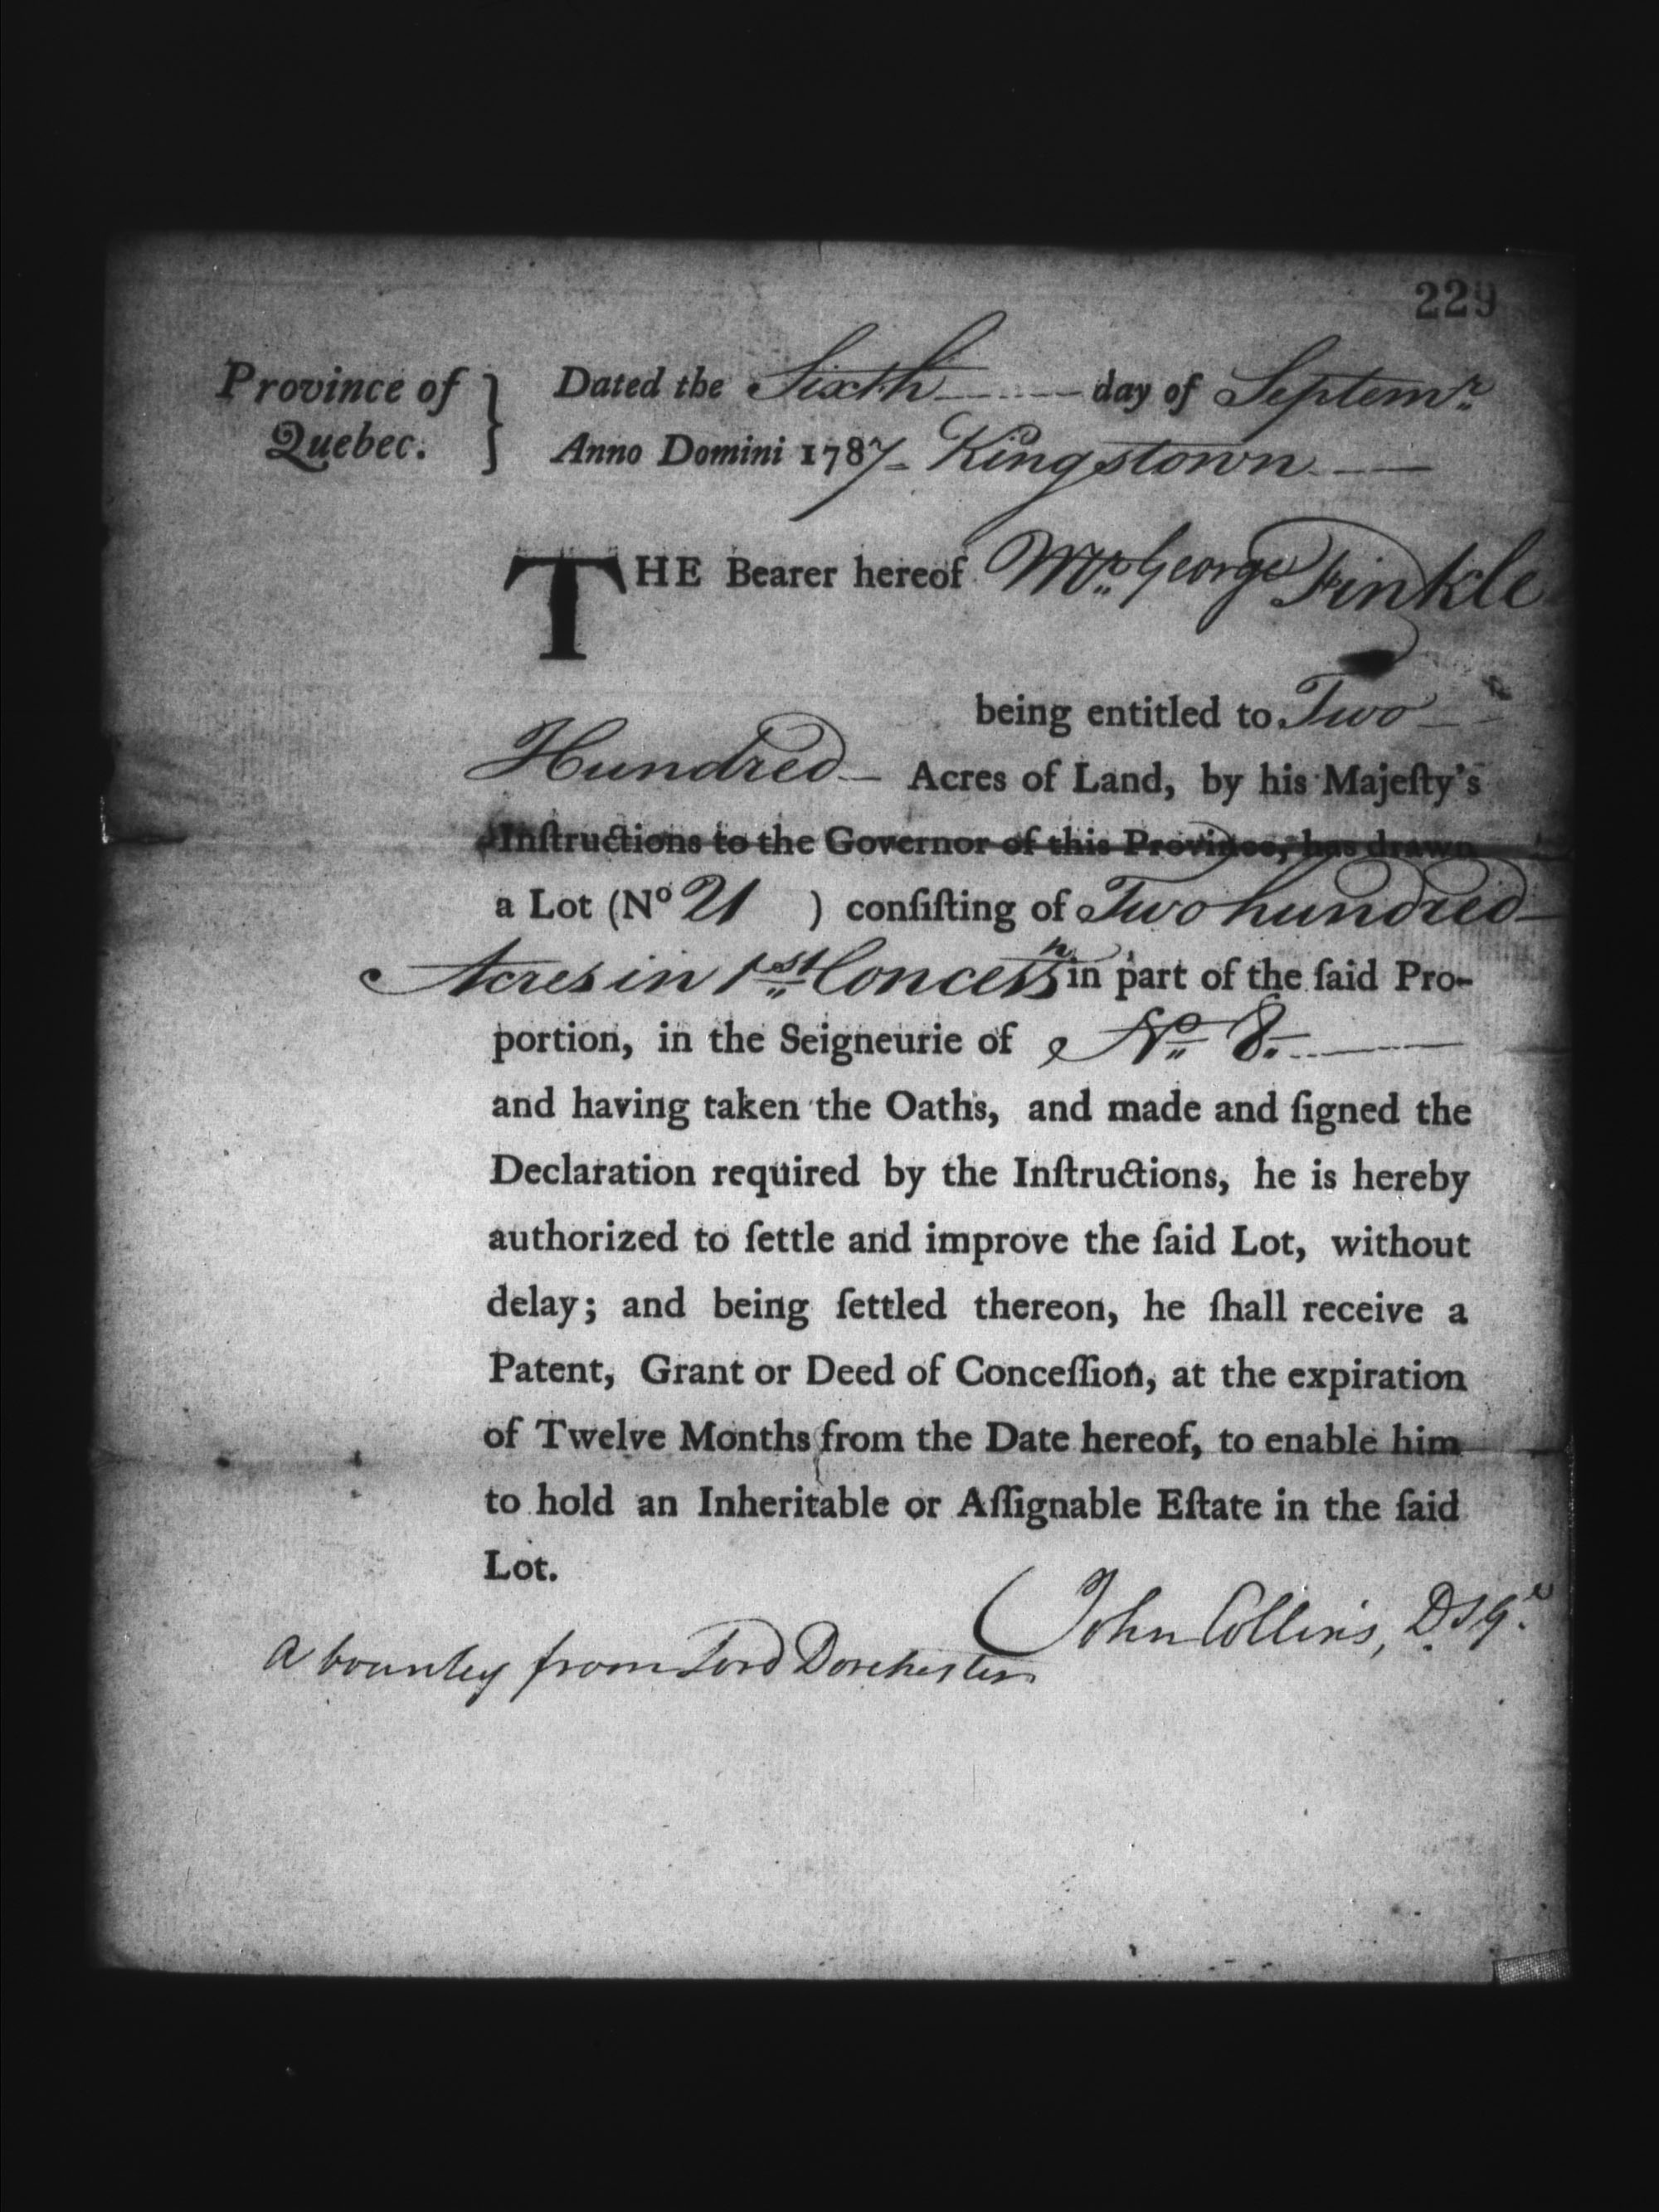 229
Province of } Dated the Sixth day of Septemr.
Quebec. } Anno Domini 1787 - Kingstown
THE Bearer hereof Mr. George Finkle
being entitled to Two
Hundred Acres of Land, by his Majeſty's
Inſtructions to the Governor of this Province, has drawn
a Lot (No 21 ) conſiſting of Two hundred
Acres in 1st. Concessn in part of the ſaid Pro-
portion, in the Seigneurie of No. 8.
and having taken the Oaths, and made and ſigned the
Declaration required by the Inſtructions, he is hereby
authorized to ſettle and improve the ſaid Lot, without
delay; and being ſettled thereon, he ſhall receive a
Patent, Grant or Deed of Conceſſion, at the expiration
of Twelve Months from the Date hereof, to enable him
to hold an Inheritable or Aſſignable Eſtate in the ſaid
Lot.
John Collins, D.S.G.
a bounty from Lord Dorchester